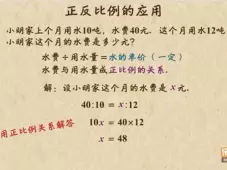 正反比例的应用
小明家上个月用水10吨，水费40元．这个月用水12吨
小明家这个月的水费是多少元？
水费÷用水量=水的单价（一定）
水费与用水量成正比例的关系．
解：设小明家这个月的水费是x元．
40:10 = x:12
用正比例关系解答
10x = 40×12
x = 48